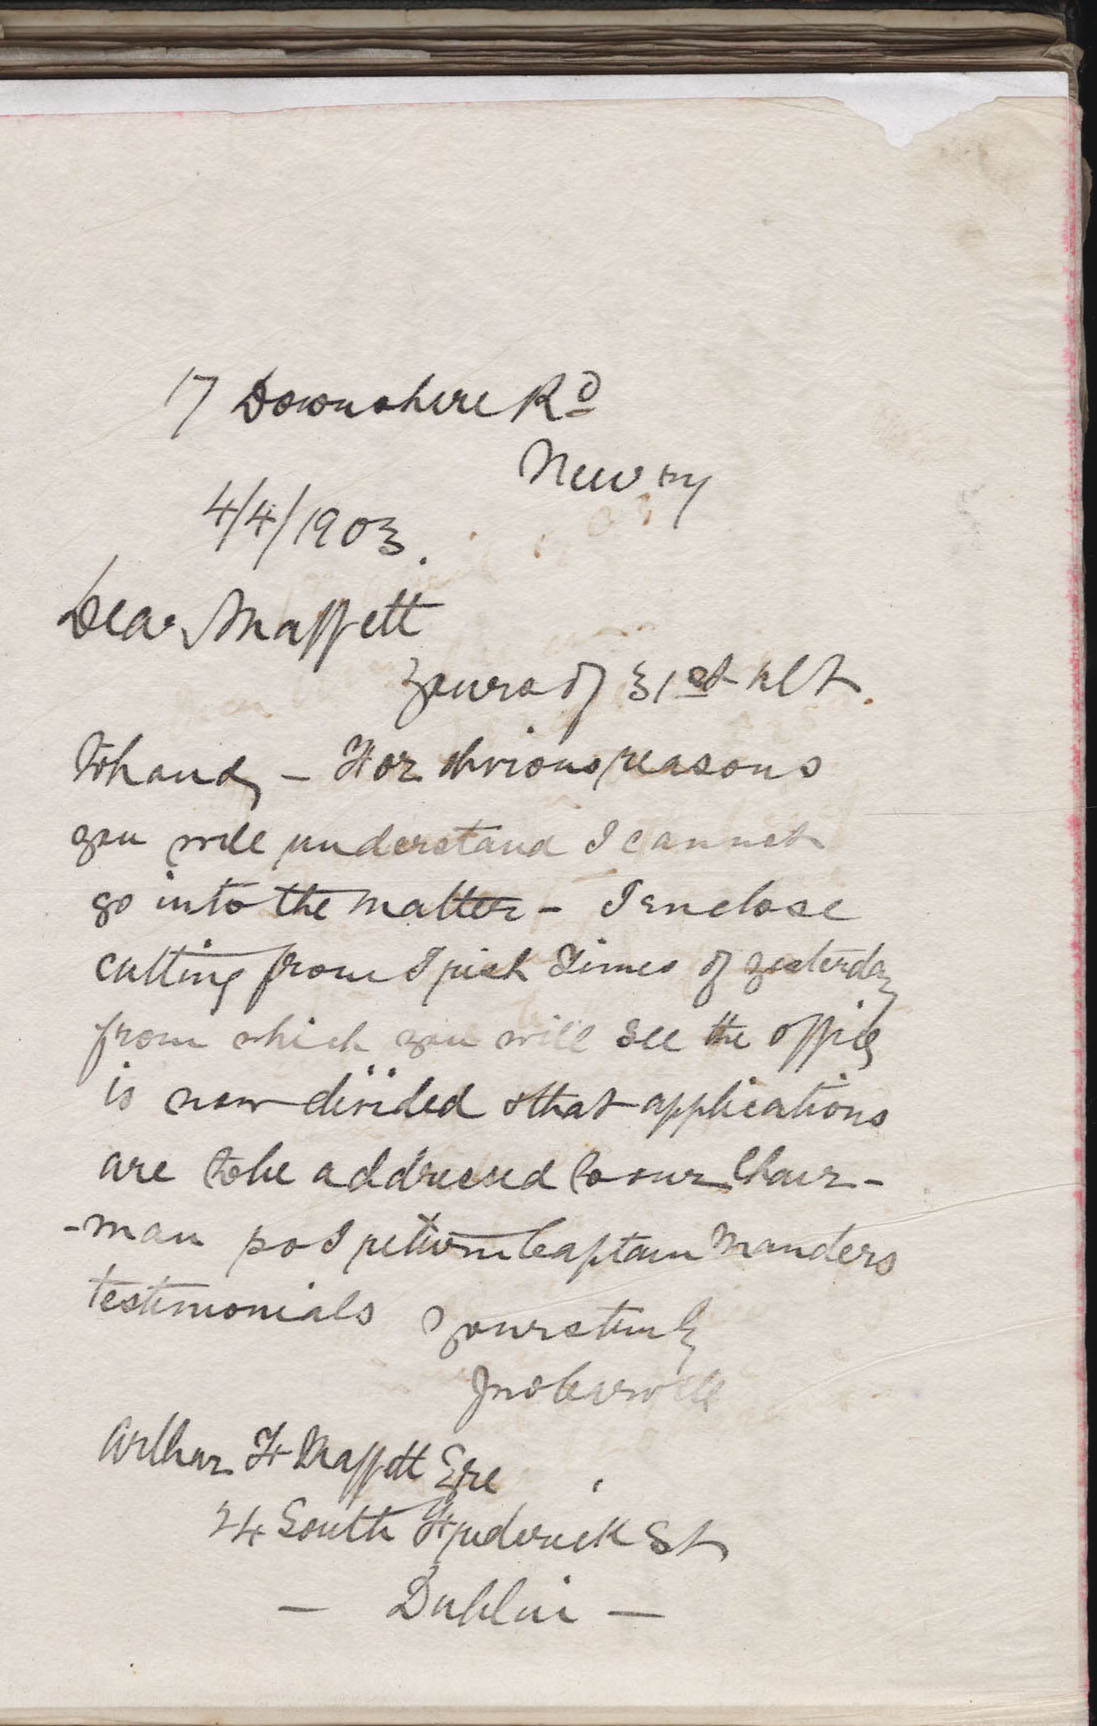 17 Downshire Rd
Newry
4/4/1903.
Dear Maffett
Yours of 31st ult.
to hand, - For obvious reasons
you will understand I cannot
go into the matter - I enclose
cutting from Irish Times of yesterday
from which you will see the office
is now divided & that applications
are to be addressed to our Chair-
-man so I return Captain Manders
testimonials
Yours truly
Jno
Arthur F Maffett Esqre
24 South Frederick St
- Dublin -